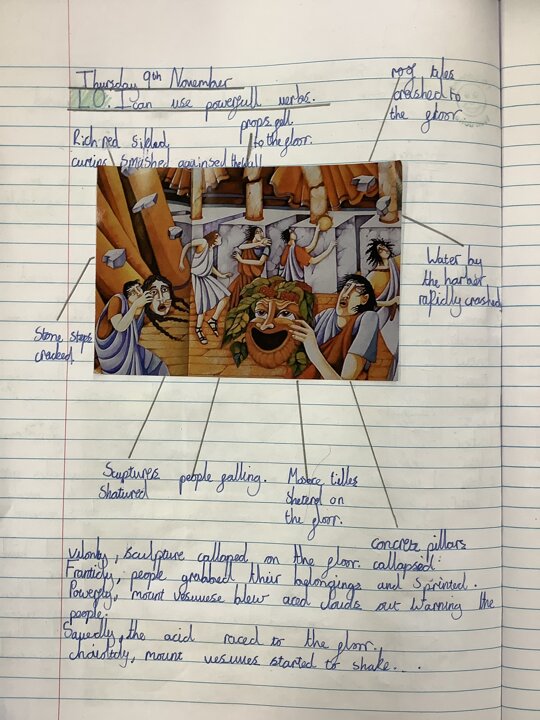 Thursday 9th November
LO: I can use powerfull verbs.
roof tiles
crashed to
the floor.
props fall
to the floor.
Rich red silded
curtins smushed againsed the wall
Water by
the harbar
rapidly crashed
Stone steps
cracked
Sculptures
Shatured
people falling.
tilles
on
the floor.
concrete pillars
callapsed.
sculpture callaped on the floor.
people grabbed their belongings and Sprinted.
mount vesuvuese blew aced clouds out warning the
people.
the acid raced to the floor.
mount vesuves started to shake...